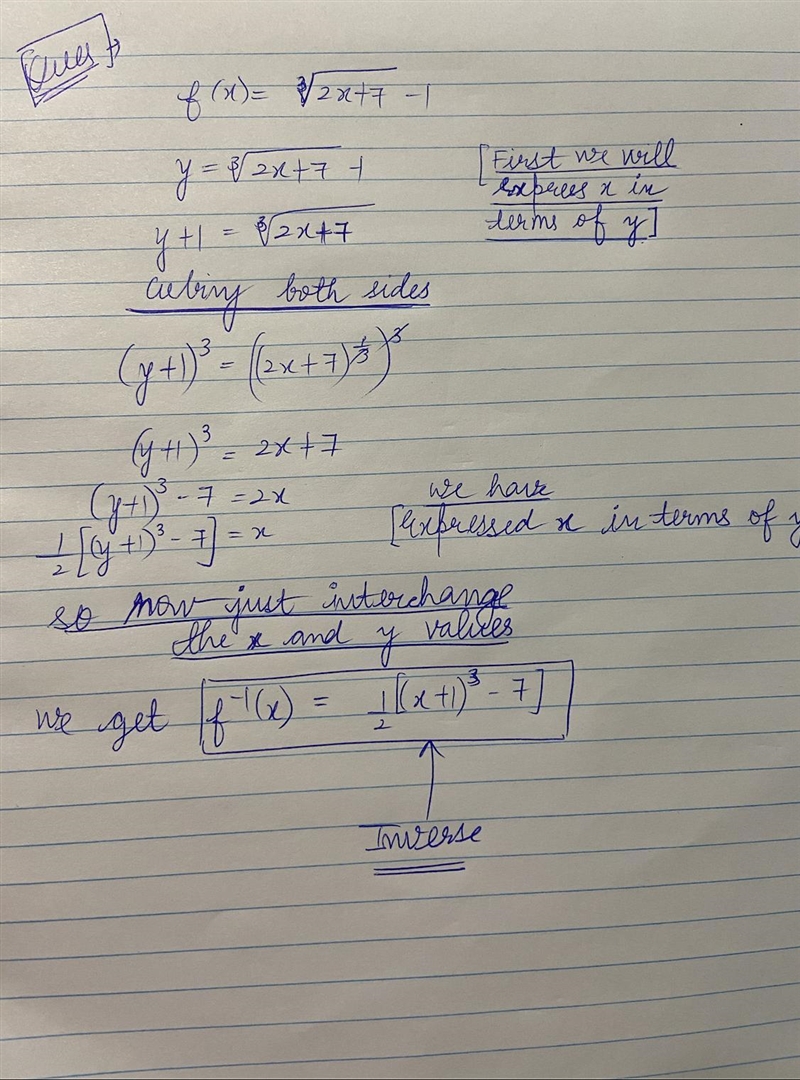 Ques →
f(x) = ∛(2x+7) - 1
y = ∛(2x+7) - 1
[First we will
express x in
terms of y]
y+1 = ∛(2x+7)
cubing both sides
(y+1)³ = ((2x+7)^(1/3))³
(y+1)³ = 2x+7
(y+1)³ - 7 = 2x
1/2 [(y+1)³ - 7] = x
we have
[expressed x in terms of y
so now just interchange
the x and y values
we get f⁻¹(x) = 1/2 [(x+1)³ - 7]
Inverse